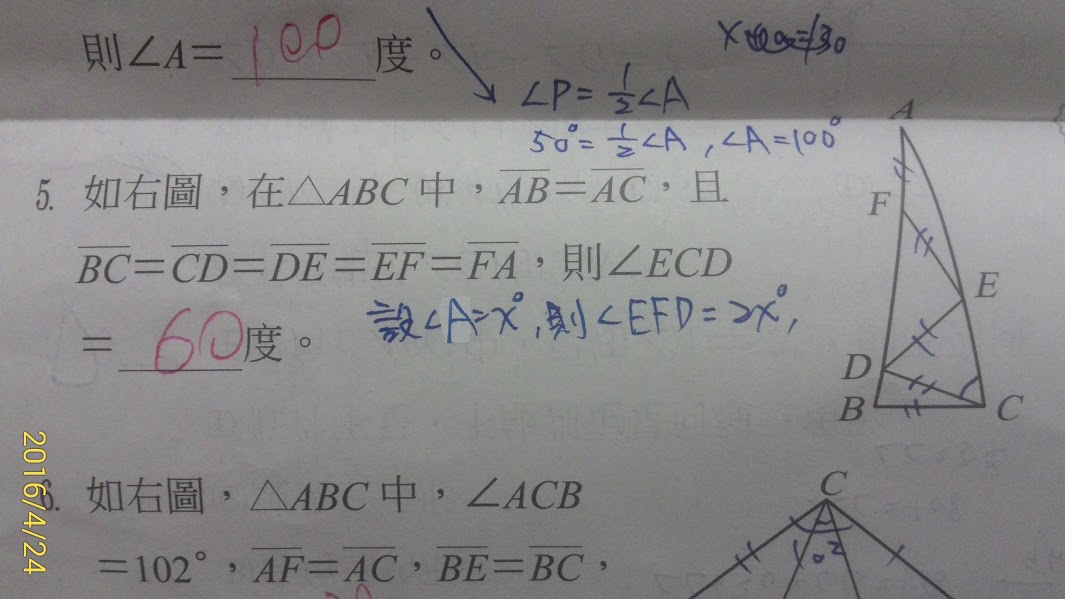 則∠A=100度。
∠P=1/2∠A
50°=1/2∠A,∠A=100°
5. 如右圖,在△ABC中,AB=AC,且
BC=CD=DE=EF=FA,則∠ECD
=60度。
設∠A=x°,則∠EFD=2x°,
A
F
E
D
B
C
6. 如右圖,△ABC中,∠ACB
=102°,AF=AC,BE=BC,
C
102
2016/4/24